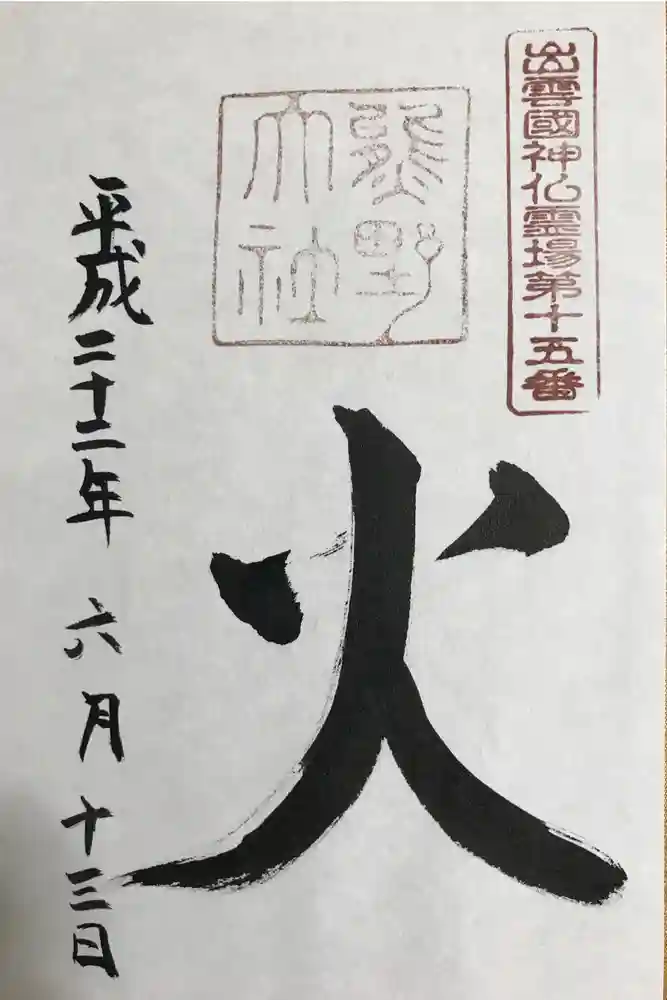 出雲國神仏霊場第十五番
熊野
大社
火
平成二十二年 六月 十三日